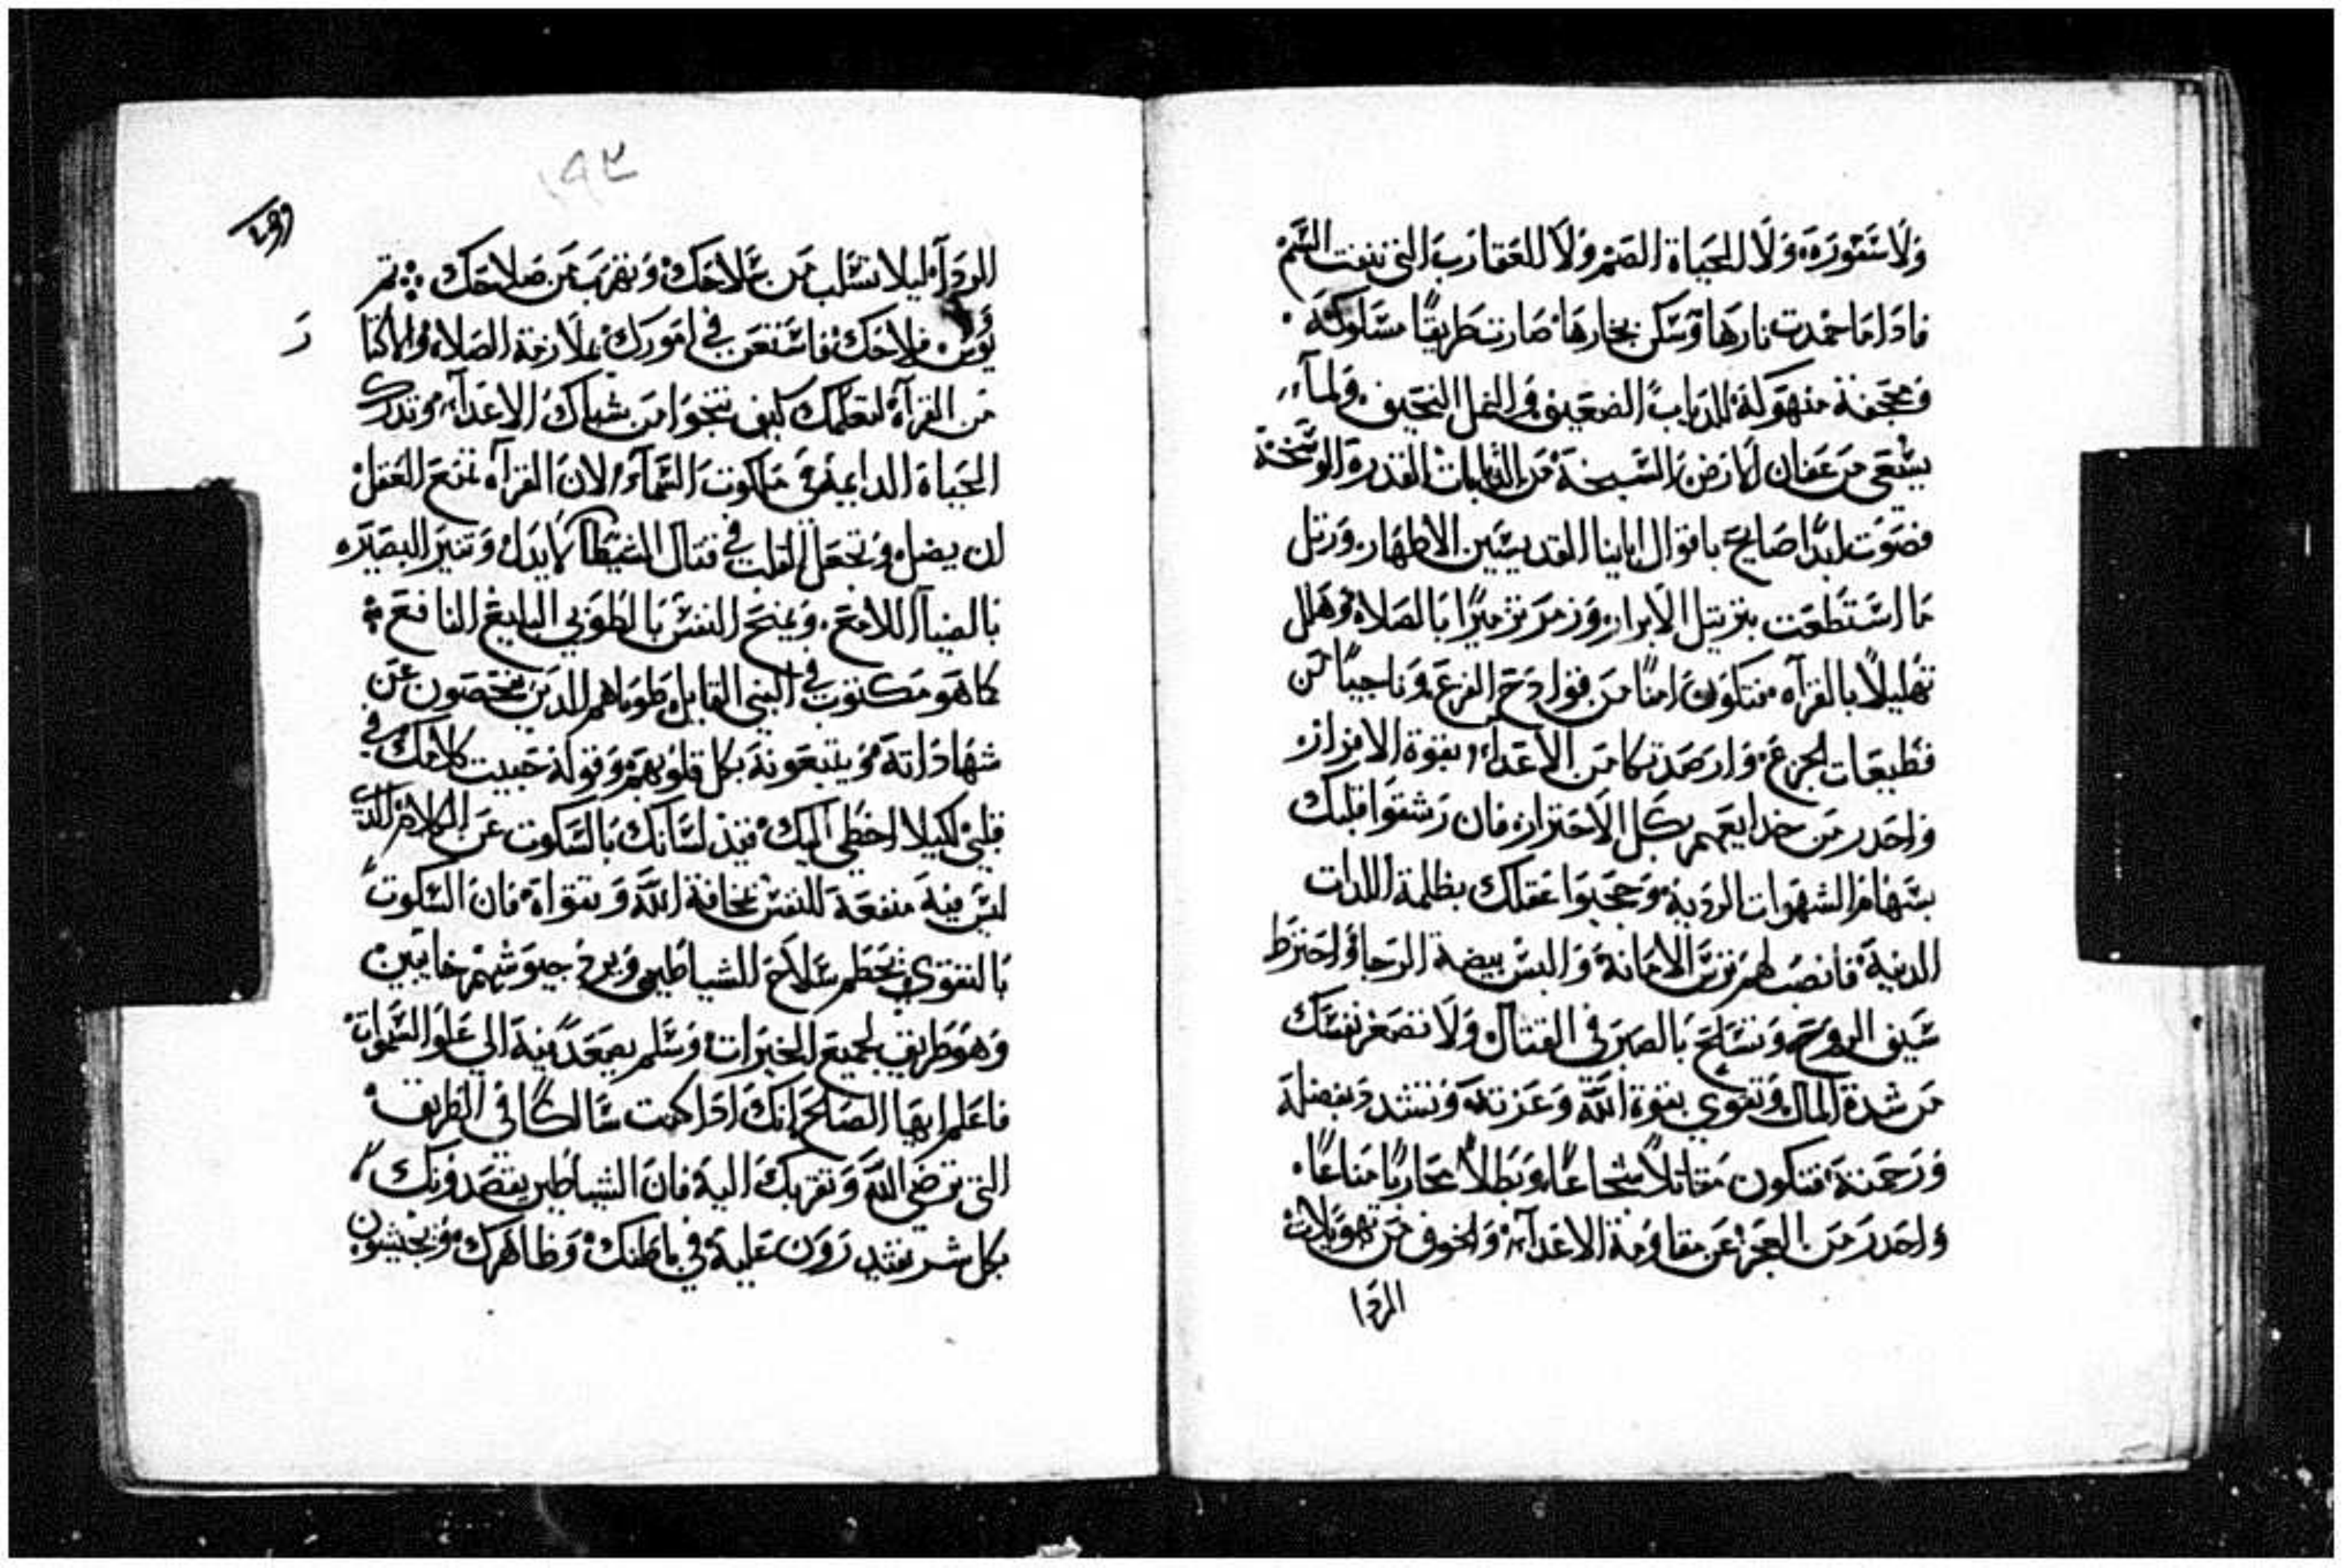 ولا سنوره ولا للحياة الصم ولا للعقارب التي تنفت السم
فادا ما خمدت نارها وسكن بخارها صارت طريقًا مسلوكه
ومحجنة منهوكة للدباب الضعيف والنمل النحيف ولماء
يسقى من الارض السبخة من القدرة الوسخة
فصوت ابدًا صايح باقوال ابابنا القديسين الاطهار ورتل
ما استطعت بترتيل الابرار وزمر تزميرًا بالصلاه وهلل
تهليلًا بالقراه فتكون امنًا من فوادح الفزع وناجيًا من
فظيعات الجزع وارصد مكامن الاعداء بقوة الافراز
واحدر من خدايعهم بكل الاحتراز فان رشقوا قلبك
بسهام الشهوات الرديه وحجبوا عقلك بظلمة اللدات
الدنية فانصب لهم ترس الامانة والبس بيضة الرجا واخترط
سيف الروح وتسلح بالصبر في القتال ولا تصغر نفسك
من شدة المال وتقوى بقوة الله وعزته وتشدد بفضله
ورحمته فتكون مقاتلًا شجاعًا وبطلًا محاربًا مناعًا
واحدر من العجز عن مقاومة الاعداء والخوف من تهويلات
الردا
١٩٢
الرداء ليلا تسلب من سلاحك وتقرب من صلاحك ثم
يوس فلاحك فاستعن في امورك بملازمة الصلاه والاكتا
ر
من القراه لتعلمك كيف تنجوا من شباك الاعداء وتدرك
الحياة الدايمة في ملكوت السماء لان القراه تمنع العقل
ان يضل وتجعل القلب في قتال المغتظ لا يدل وتنير البصيره
بالضياء اللامع وتمنح النفس بالطوبى البليغ النافع
كما هو مكتوب في النبي القايل طوباهم الدين يفحصون عن
شهاداته ويتبعونه بكل قلوبهم وقوله خبيت كلامك في
قلبي لكيلا اخطي اليك قيد لسانك بالسكوت عن الكلام الدي
ليس فيه منفعة للنفس بمخافة الله وتقواه فان السكوت
بالتقوى يحطم سلاح الشياطين ويرد جيوشهم خايبين
وهو طريق لجميع الخيرات وسلم يصعد فيه الى علو السموات
فاعلم ايها الصالح انك ادا كنت سالكًا في الطريق
التي ترضي الله وتقربك اليه فان الشياطين يقصدونك
بكل شر يقتدرون عليه في باطنك وظاهرك ويجيشون